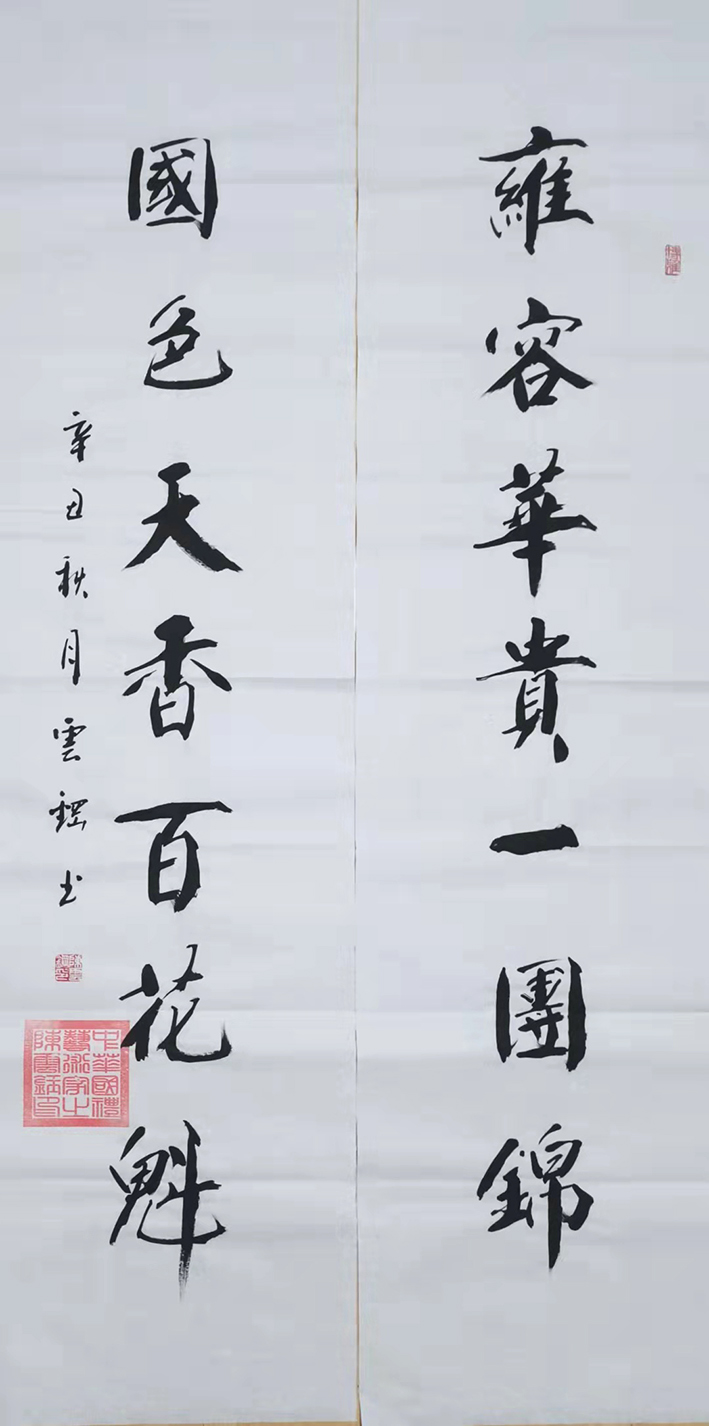 雍容華貴一團錦
國色天香百花魁
辛丑秋月雲书
中華國禮
藝術家之
陳雲印